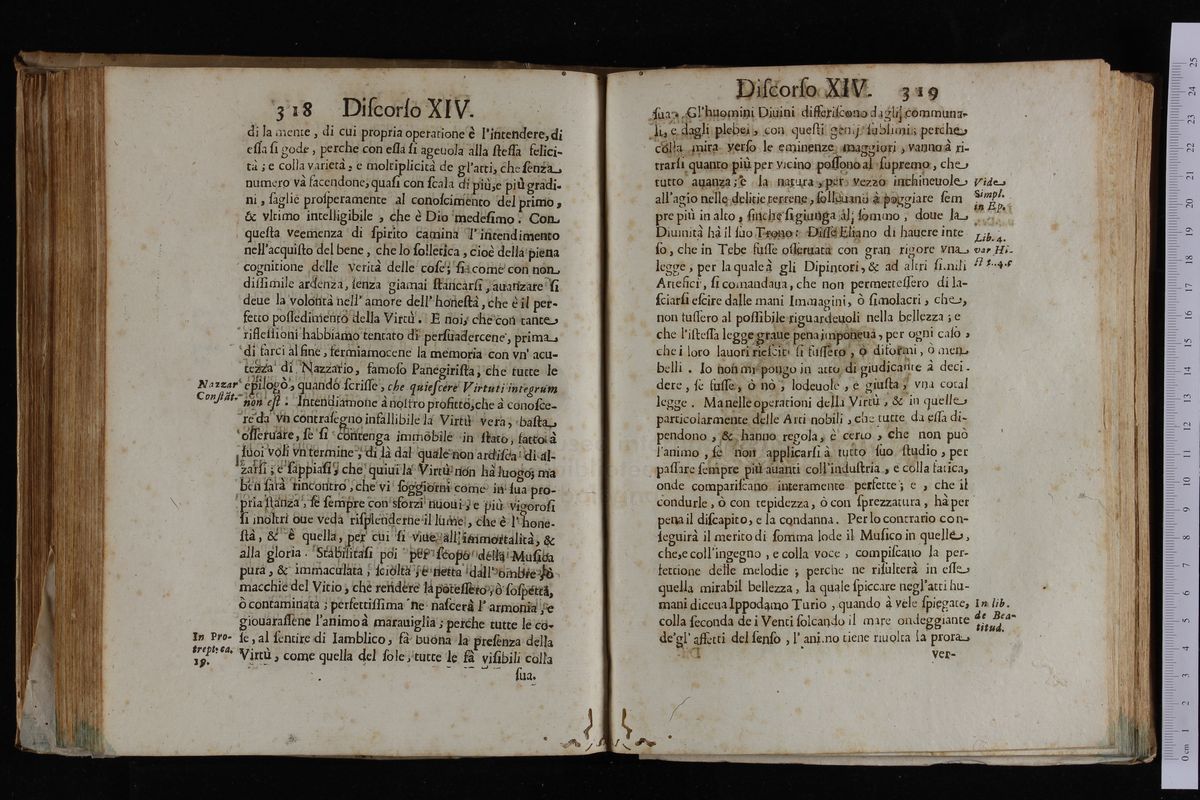 318 Diſcorſo XIV.
di la mente, di cui propria operatione è l'intendere, di
eſſa ſi gode, perche con eſſa ſi ageuola alla ſteſſa felici-
tà; e colla varietà, e moltiplicità de gl'atti, che ſenza
numero và facendone, quaſi con ſcala di più, e più gradi-
ni, ſaglie proſperamente al conoſcimento del primo,
& vltimo intelligibile, che è Dio medeſimo. Con
queſta veemenza di ſpirito camina l'intendimento
nell'acquiſto del bene, che lo ſolletica, cioè della piena
cognitione delle verità delle coſe; ſi come con non
diſſimile ardenza, ſenza giamai ſtancarſi, auanzare ſi
deue la volontà nell'amore dell'honeſtà, che è il per-
fetto poſſedimento della Virtù. E noi, che con tante
rifleſſioni habbiamo tentato di perſuadercene, prima
di farci al fine, fermiamocene la memoria con vn'acu-
tezza di Nazzario, famoſo Panegiriſta, che tutte le
Nazzar epilogò, quando ſcriſſe, che quieſcere Virtuti integrum
Conſtãt. non eſt. Intendiamone à noſtro profitto, che à conoſce-
re da vn contraſegno infallibile la Virtù vera, baſta
oſſeruare, ſe ſi contenga immobile in ſtato, fatto à
ſuoi voli vn termine, di là dal quale non ardiſca di al-
zarſi; e ſappiaſi, che quiui la Virtù non hà luogo; ma
ben ſarà rincontro, che vi ſoggiorni come in ſua pro-
pria ſtanza, ſe ſempre con sforzi nuoui, e più vigoroſi
ſi inoltri oue veda riſplenderne il lume, che è l'hone-
ſtà, & è quella, per cui ſi viue all'immortalità, &
alla gloria. Stabilitaſi poi per ſcopo della Muſica
pura, & immaculata, ſciolta, e netta dall'ombre, ò
macchie del Vitio, che rendere la poteſſero, ò ſoſpetta,
ò contaminata; perfettiſſima ne naſcerà l'armonia, e
giouaraſſene l'animo à marauiglia; perche tutte le co-
In Pro- ſe, al ſentire di Iamblico, fà buona la preſenza della
trept. ca. Virtù, come quella del ſole, tutte le fà viſibili colla
19.
ſua.
Diſcorſo XIV. 319
ſua. Gl'huomini Diuini differiſcono dagli communa-
li, e dagli plebei, con queſti genij ſublimi; perche
colla mira verſo le eminenze maggiori, vanno à ri-
trarſi quanto più per vicino poſſono al ſupremo, che
tutto auanza; e la natura, per vezzo inchineuole Vide
all'agio nelle delitie terrene, ſolleuano à poggiare ſem Simpl.
pre più in alto, ſinche ſi giunga al ſommo, doue la in Ep.
Diuinità hà il ſuo Trono: Diſſe Eliano di hauere inte
ſo, che in Tebe fuſſe oſſeruata con gran rigore vna Lib. 4. var Hi-
legge, per la quale à gli Dipintori, & ad altri ſimili
Artefici, ſi comandaua, che non permetteſſero di la-
ſciarſi eſcire dalle mani Immagini, ò ſimolacri, che,
non fuſſero al poſſibile riguardeuoli nella bellezza; e
che l'iſteſſa legge graue pena imponeua, per ogni caſo,
che i loro lauori rieſciti ſi fuſſero, ò diformi, ò men
belli. Io non mi pongo in atto di giudicante à deci-
dere, ſe fuſſe, ò nò, lodeuole, e giuſta, vna cotal
legge. Ma nelle operationi della Virtù, & in quelle
particolarmente delle Arti nobili, che tutte da eſſa di-
pendono, & hanno regola, è certo, che non può
l'animo, ſe non applicarſi à tutto ſuo ſtudio, per
paſſare ſempre più auanti coll'induſtria, e colla fatica,
onde compariſcano interamente perfette; e, che il
condurle, ò con tepidezza, ò con ſprezzatura, hà per
pena il diſcapito, e la condanna. Per lo contrario con-
ſeguirà il merito di ſomma lode il Muſico in quelle,
che, e coll'ingegno, e colla voce, compiſcano la per-
fettione delle melodie; perche ne riſulterà in eſſe
quella mirabil bellezza, la quale ſpiccare negl'atti hu-
mani diceua Ippodamo Turio, quando à vele ſpiegate, In lib.
colla ſeconda de i Venti ſolcando il mare ondeggiante de Bea-
de'gl'affetti del ſenſo, l'animo tiene riuolta la prora titud.
ver-